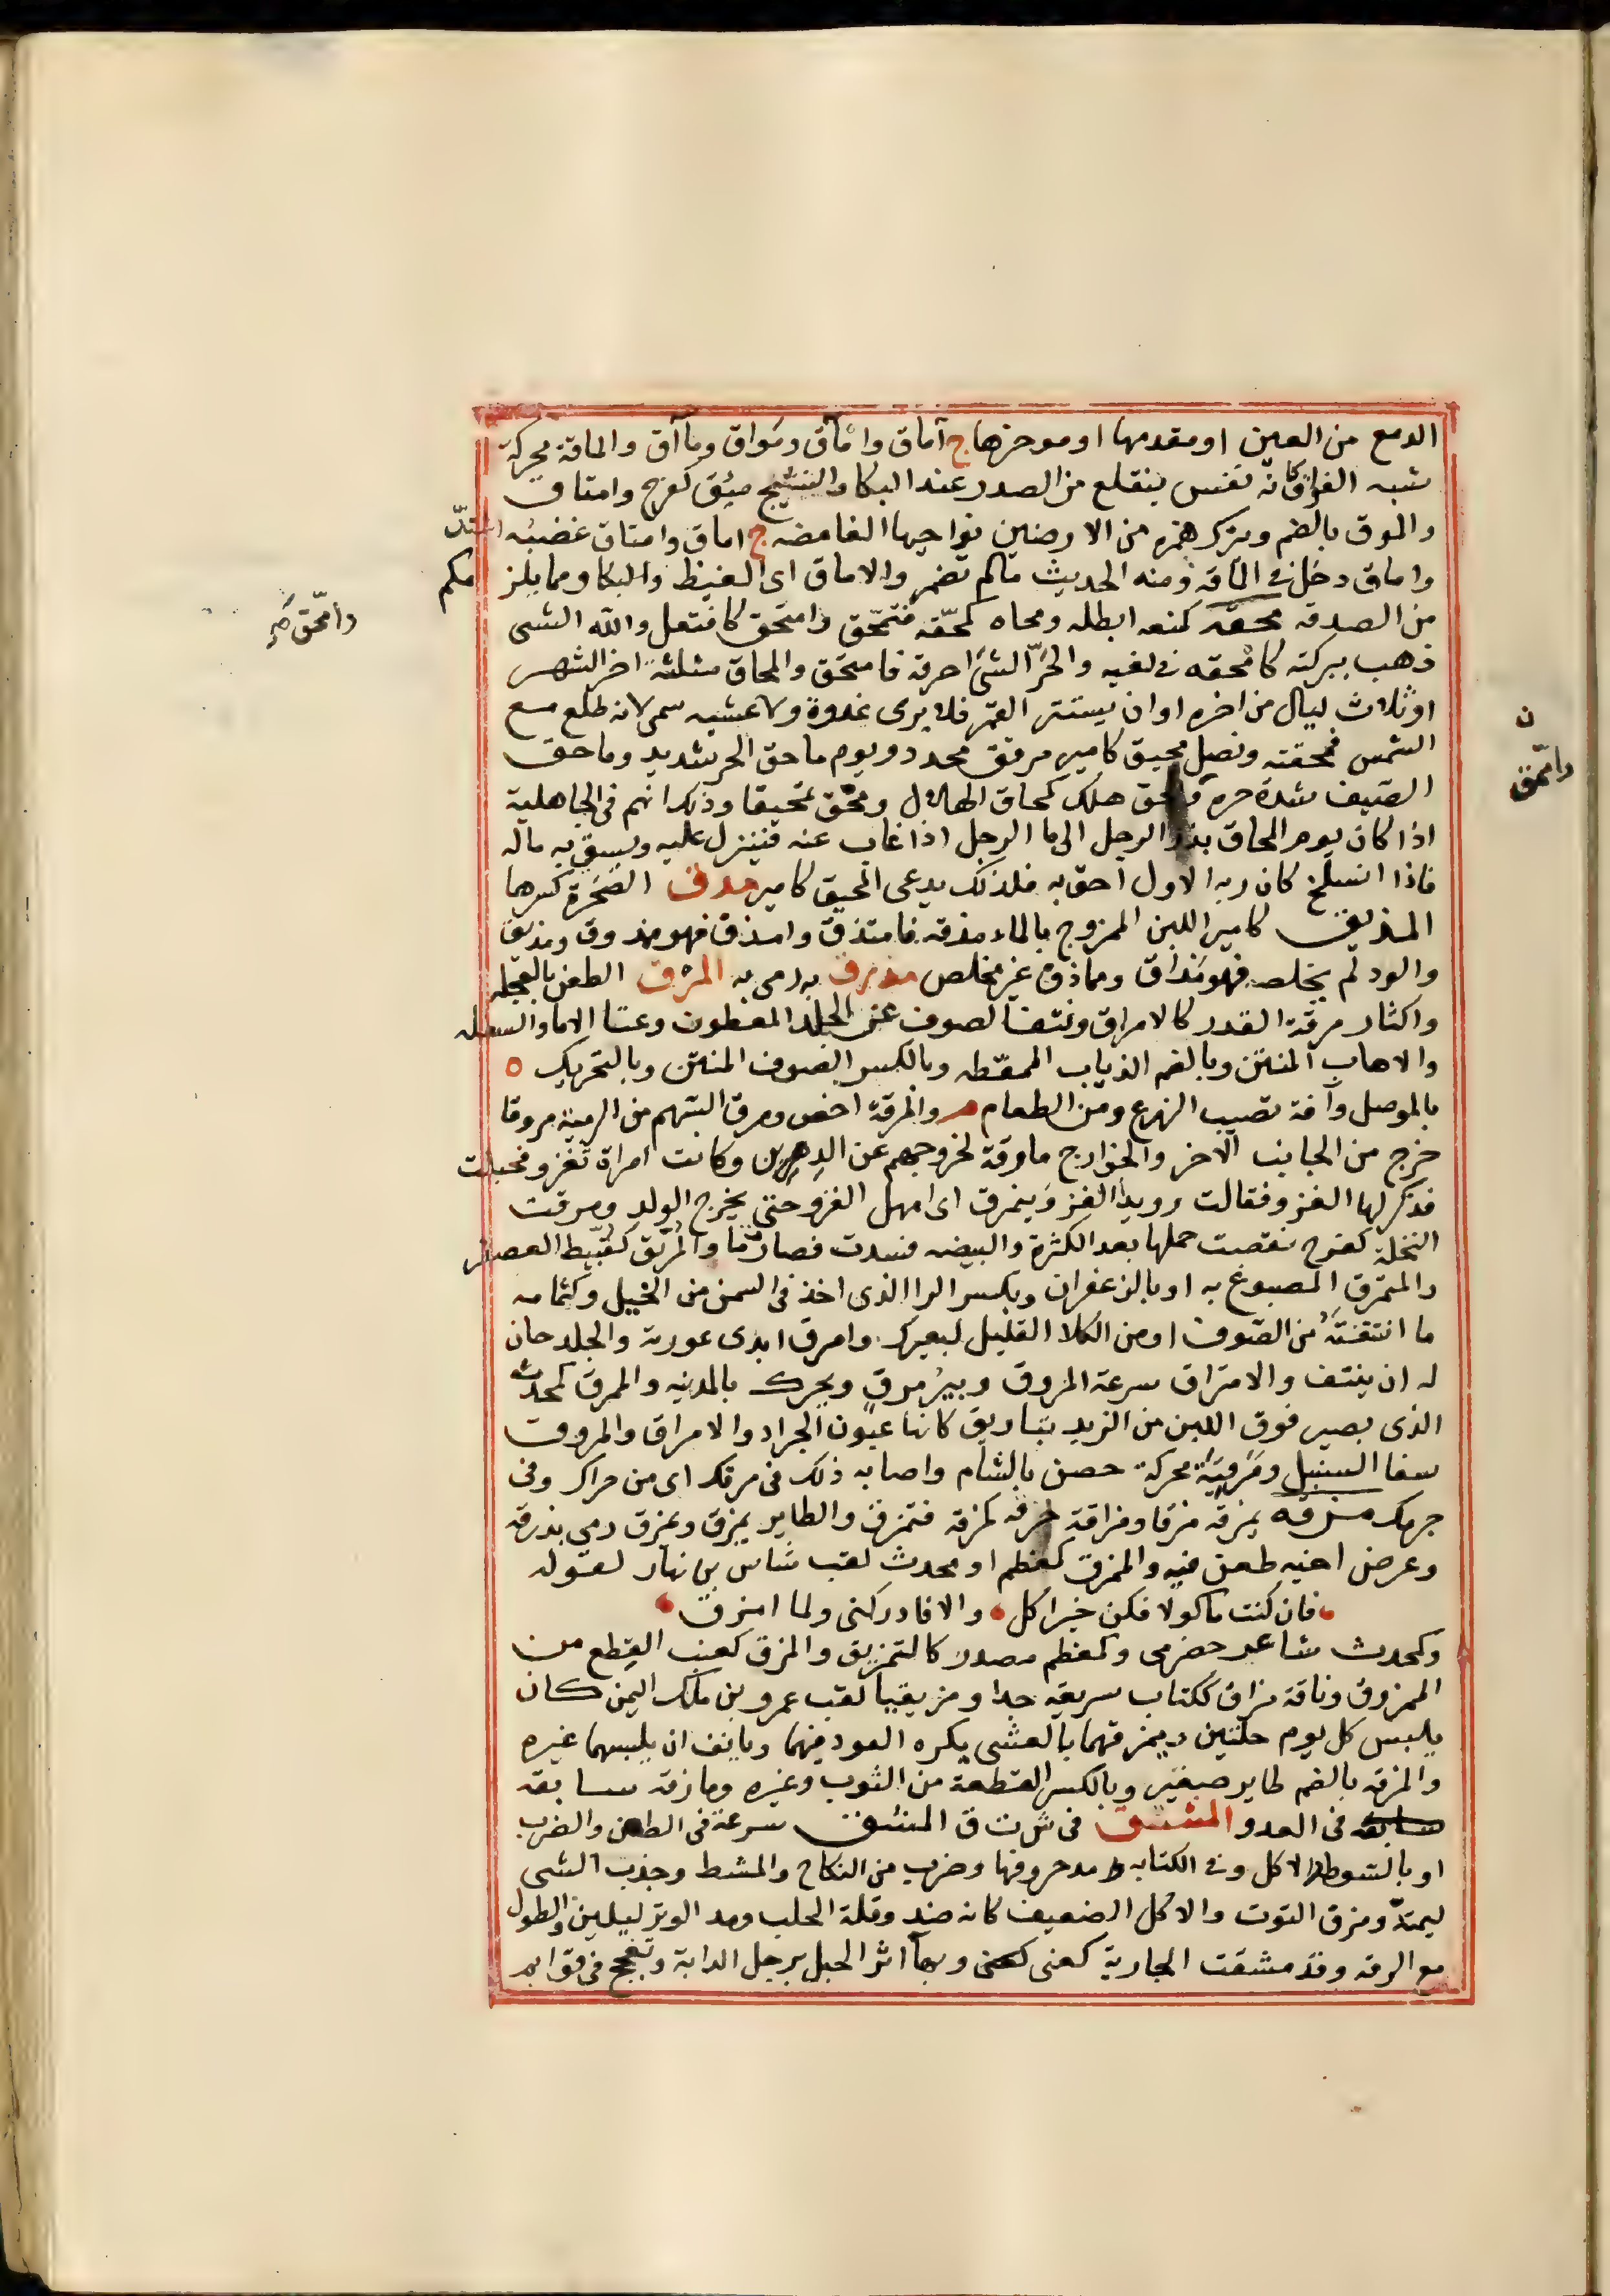 الدمع من العين او مقدمها او موخرها ج آماق وامآق ومواق ومآق والماقة محركة
شبه الفواق كانه نفس ينقلع من الصدر عند البكا والنشيج ميق كفرح وامتاق
والموق بالضم ويترك همزه من الارضين نواحيها الغامضه ج اماق وامتاق غضبه اشتد
واماق دخل في الماقه ومنه الحديث مالم تضمر والاماق اى الغيظ والبكا ومما يلزمكم
من الصدقه محقه كمنعه ابطله ومحاه كمحّقه فتمحّق وامتحق كافتعل والله الشى
ذهب ببركته كامحقه في لغيه والحرّ الشئ احرقه فامتحق والمحاق مثلثة اخر الشهر
او ثلاث ليال من اخره او ان يستتر القمر فلا يرى غدوة ولا عشيه سمى لانه طلع مع
الشمس فمحقته ونصل محيق كامير مرقق محدد ويوم ماحق الحر شديد وماحق
الصيف شدة حره وامحق هلك كمحاق الهلال ومحق تمحيقا وذلك انهم فى الجاهلية
اذا كان يوم المحاق بدر الرجل الى ما الرجل اذا غاب عنه فينزل عليه ويسقي به ماله
فاذا انسلخ كان ربه الاول احق به فلذلك يدعى المحيق كامير مدق الصخرة كسرها
المذيق كامير اللبن الممزوج بالماء مذقه فامتذق وامذق فهو مذوق ومذيق
والود لم يخلصه فهو مذاق ومماذق غير مخلص مذرق به رمى به المرق الطعن بالعجله
واكثار مرقة القدر كالامراق ونتف الصوف عن الجلد المعطون وغنا الاما والسفله
والاهاب المنتن وبالضم الذياب الممعطه وبالكسر الصوف المنتن وبالتحريك ه
بالموصل وآفة تصيب الزرع ومن الطعام م والمرقة اخص ومرق السهم من الرمية مروقا
خرج من الجانب الآخر والخوارج مارقة لخروجهم عن الدين وكانت امراة تغزو فحبلت
فذكر لها الغزو فقالت رويد الغزو ينمرق اى امهل الغزو حتى يخرج الولد ومرقت
النخلة كفرح نفضت حملها بعد الكثرة والبيضه فسدت فصارت ما والمريق كقبيط العصفر
والمتمرق المصبوغ به او بالزعفران وبكسر الرا الذى اخذ فى السمن من الخيل وكثمامه
ما انتتفته من الصوف او من الكلا القليل لبعيرك وامرق ابدى عورته والجلد حان
له ان ينتف والامتراق سرعة المروق وبير مرق ويحرك بالمدينه والممرق كمحدث
الذى يصير فوق اللبن من الزبد تباريق كانها عيون الجراد والامراق والمروق
سفا السنبل ومَرَقيّة محركة حصن بالشام واصابه ذلك فى مرقك اى من جراك وفى
جرمك مزقه يمزقه مزقا ومزاقة خرقه كمزقه فتمزق والطاير يمزق ويمزق رمى بذرقه
وعرض اخيه طعن فيه والممزق كمعظم او محدث لقب شاس بن نهار لقوله
فان كنت ماكولا فكن خير اكل والا فادركنى ولما امزق
وكمحدث شاعر حضرمى وكمعظم مصدر كالتمزيق والمزق كعنب القطع من
الممزوق وناقة مزاق ككتاب سريعه جدا ومزيقيا لقب عمرو بن ملك اليمن كان
يلبس كل يوم حلتين ويمزقهما بالعشى يكره العود فيهما ويانف ان يلبسهما غيره
والمزقه بالضم طاير صغير وبالكسر القطعة من الثوب وغيره ومازقه سابقه
سابقه فى العدو المشتق فى ش ت ق المشق سرعة فى الطعن والضرب
او بالسوط والاكل وفى الكتابه و مد حروفها وضرب من النكاح والمشط وجذب الشى
ليمتدّ ومزق الثوب والاكل الضعيف كانه ضد وقلة الحلب ومد الوتر ليلين والطول
مع الرقه وقد مشقت الجارية كعنى كعنى وبها اثر الحبل برجل الدابة وتفحج فى قوايم
وامّحق صح
ن
وامّحق